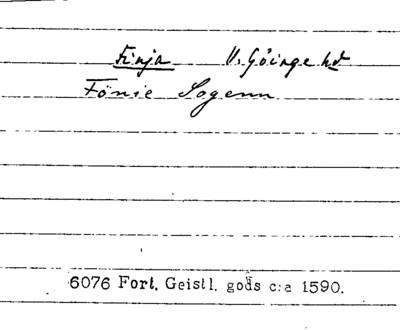 Finja V. Göinge hd
Fönie Sogenn
6076 Fort. Geistl. gods c:a 1590.